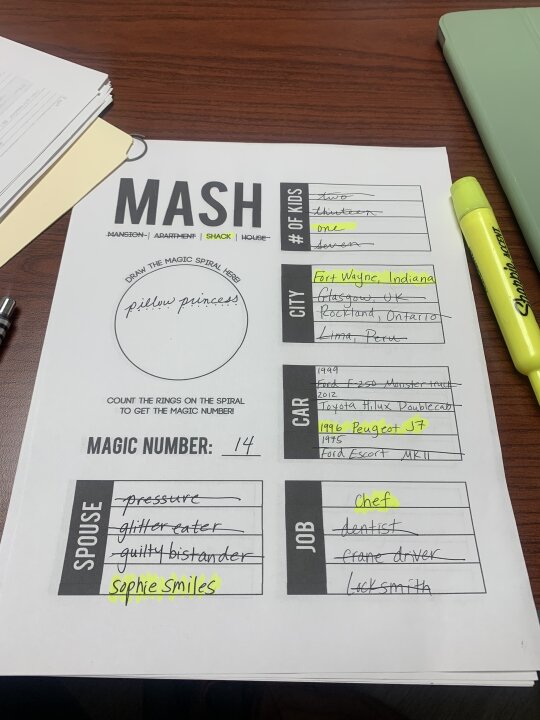 MASH
MANSION | APARTMENT | SHACK | HOUSE
DRAW THE MAGIC SPIRAL HERE!
pillow princess
COUNT THE RINGS ON THE SPIRAL
TO GET THE MAGIC NUMBER!
MAGIC NUMBER: 14
# OF KIDS
two
thirteen
one
seven
CITY
Fort Wayne, Indiana
Glasgow, UK
Rockland, Ontario
Lima, Peru
CAR
1999
Ford F-250 Monster truck
2012
Toyota Hilux Doublecab
1996 Peugeot J7
1975
Ford Escort MKII
SPOUSE
pressure
glitter eater
guilty bistander
sophie smiles
JOB
Chef
dentist
crane driver
Locksmith
Sharpie ACCENT